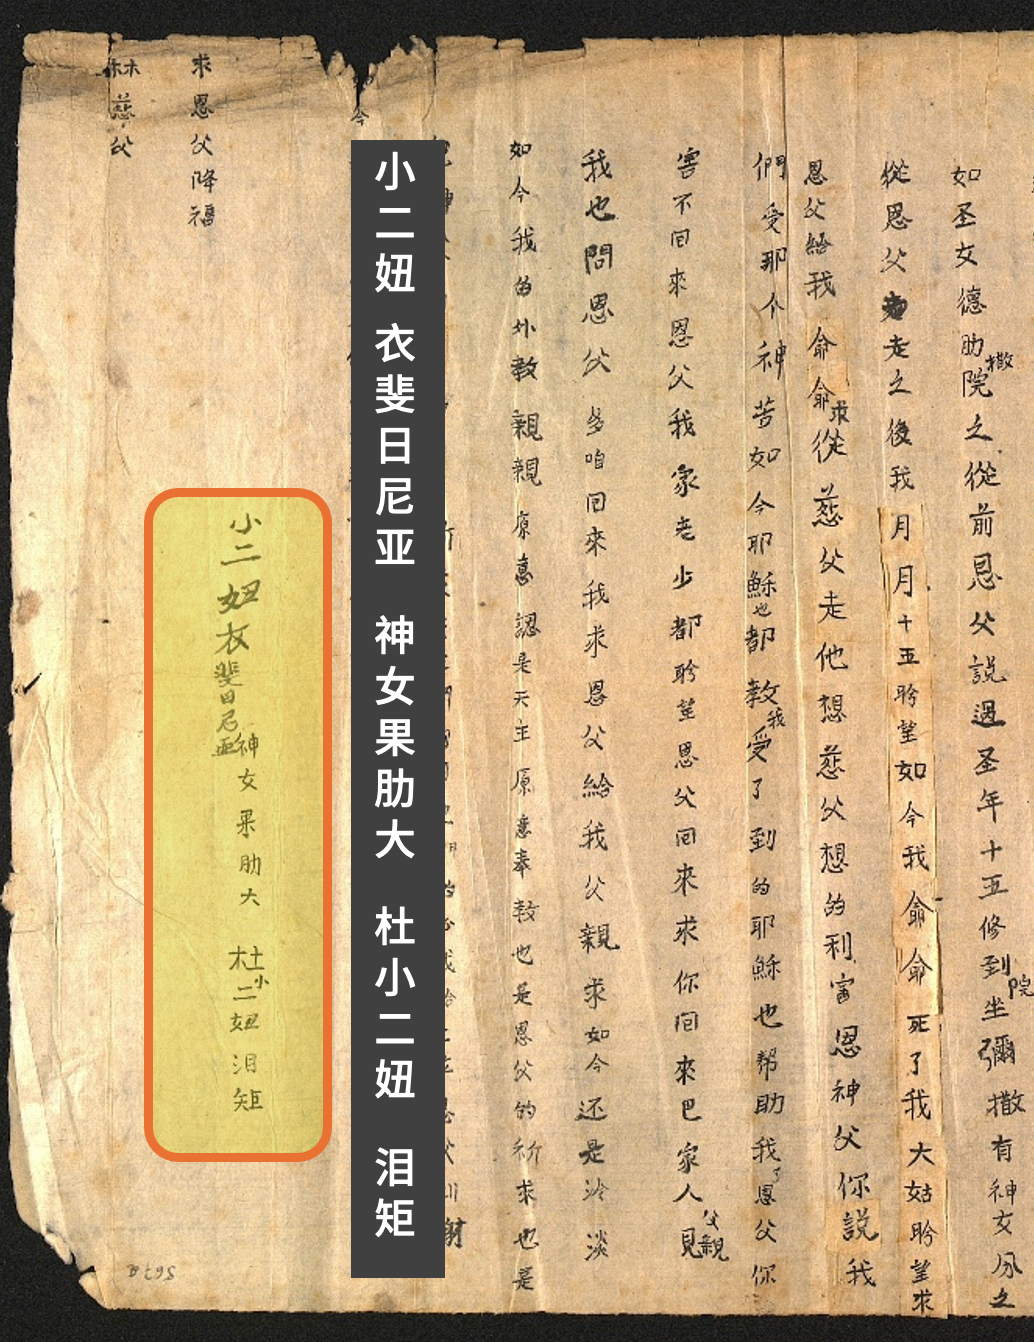 如圣女德肋撒院之從前恩父説過圣年十五修到院坐彌撒有神女分之
從恩父走之後我月月十五盼望如今我侖侖死了我大姑盼望求
恩父給我侖侖求從慈父走他想慈父想的利害恩神父你説我
們受那个神苦如今耶穌也都教我受了到的耶穌也帮助我了恩父你
害不回來恩父我家老少都盼望恩父回來求你回來巴家人見父親
我也問恩父多咱回來我求恩父給我父親求如今还是冷淡
如今我的外教親親原意認是天主原意奉教也是恩父的祈求也是
小二妞 衣斐日尼亚 神女果肋大 杜小二妞 泪矩
小二妞衣斐日尼亚
神女果肋大
杜小二妞泪矩
求恩父降福
林慈父